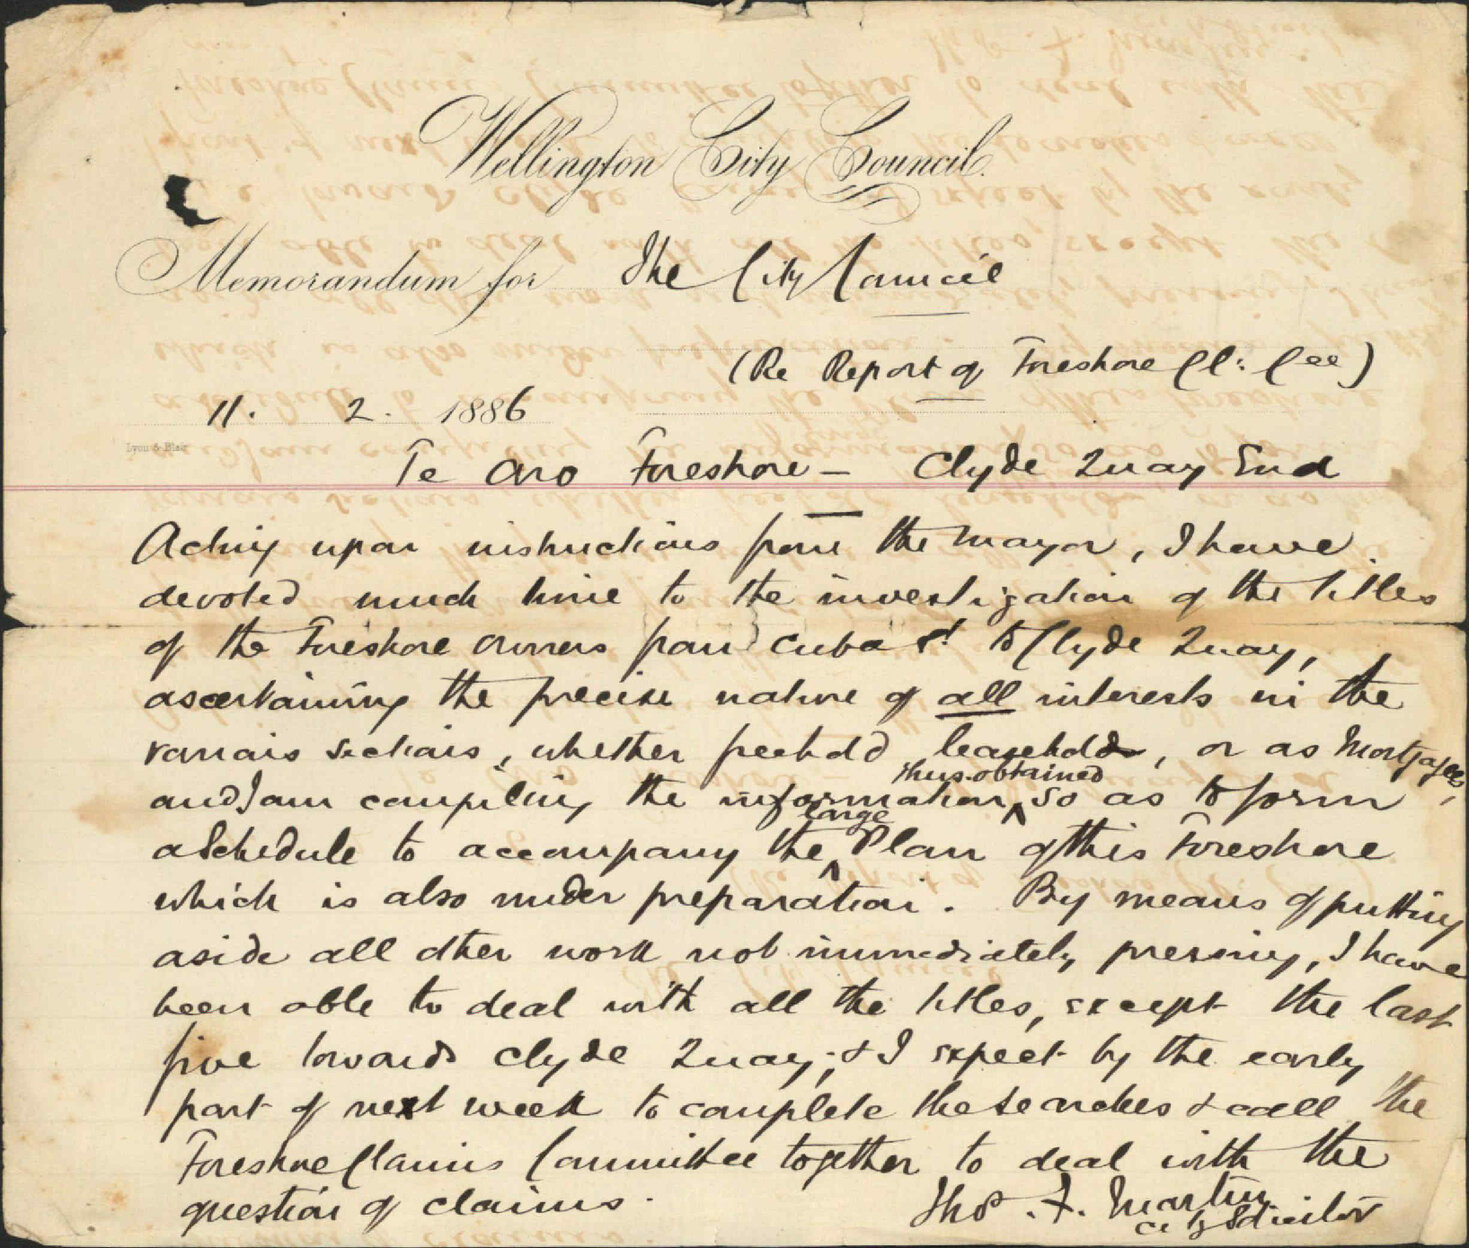 Wellington City Council.
Memorandum for The City Council
(Re Report of Foreshore Cl: Cee)
11. 2. 1886
Lyon & Blair
Te Aro Foreshore — Clyde Quay End
Acting upon instructions from the Mayor, I have
devoted much time to the investigation of the titles
of the Foreshore owners from Cuba St to Clyde Quay,
ascertaining the precise nature of all interests in the
various sections, whether freehold leasehold, or as Mortgagees,
and I am compiling the information thus obtained so as to form
a Schedule to accompany the large Plan of this Foreshore
which is also under preparation. By means of putting
aside all other work not immediately pressing, I have
been able to deal with all the titles, except the last
five towards Clyde Quay; & I expect by the early
part of next week to complete the searches & call the
Foreshore Claims Committee together to deal with the
question of claims.
Thos. F. Martin
City Solicitor